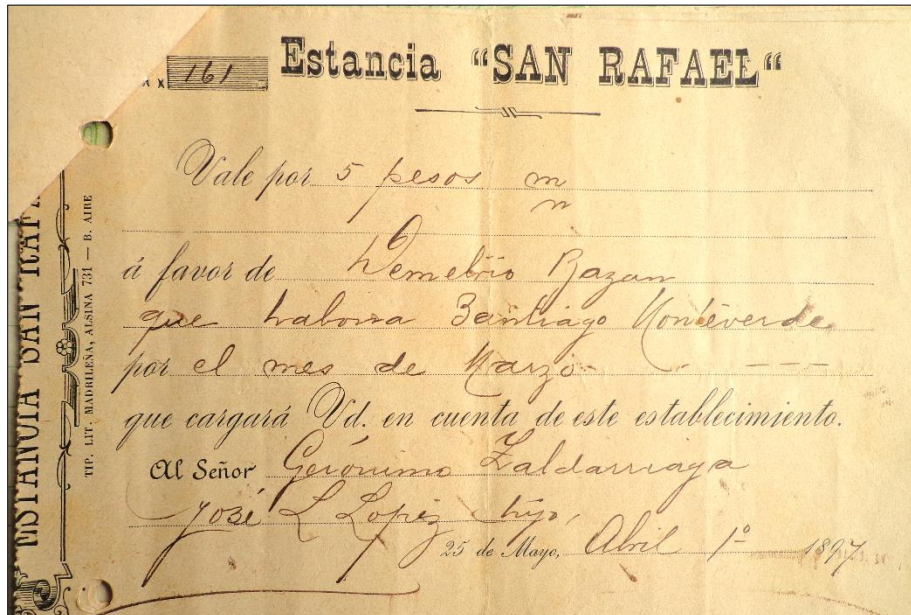 161 Estancia "SAN RAFAEL"
Vale por 5 pesos m
n
á favor de Demetrio Bazan
que Santiago Monteverde
por el mes de Marzo
que cargará Vd. en cuenta de este establecimiento.
Al Señor Gerónimo Zaldarriaga
José L Lopez hijo,
25 de Mayo, Abril 1º 1897
ESTANCIA SAN RAFA
TIP. LIT. MADRILEÑA, ALSINA 731 — B. AIRE